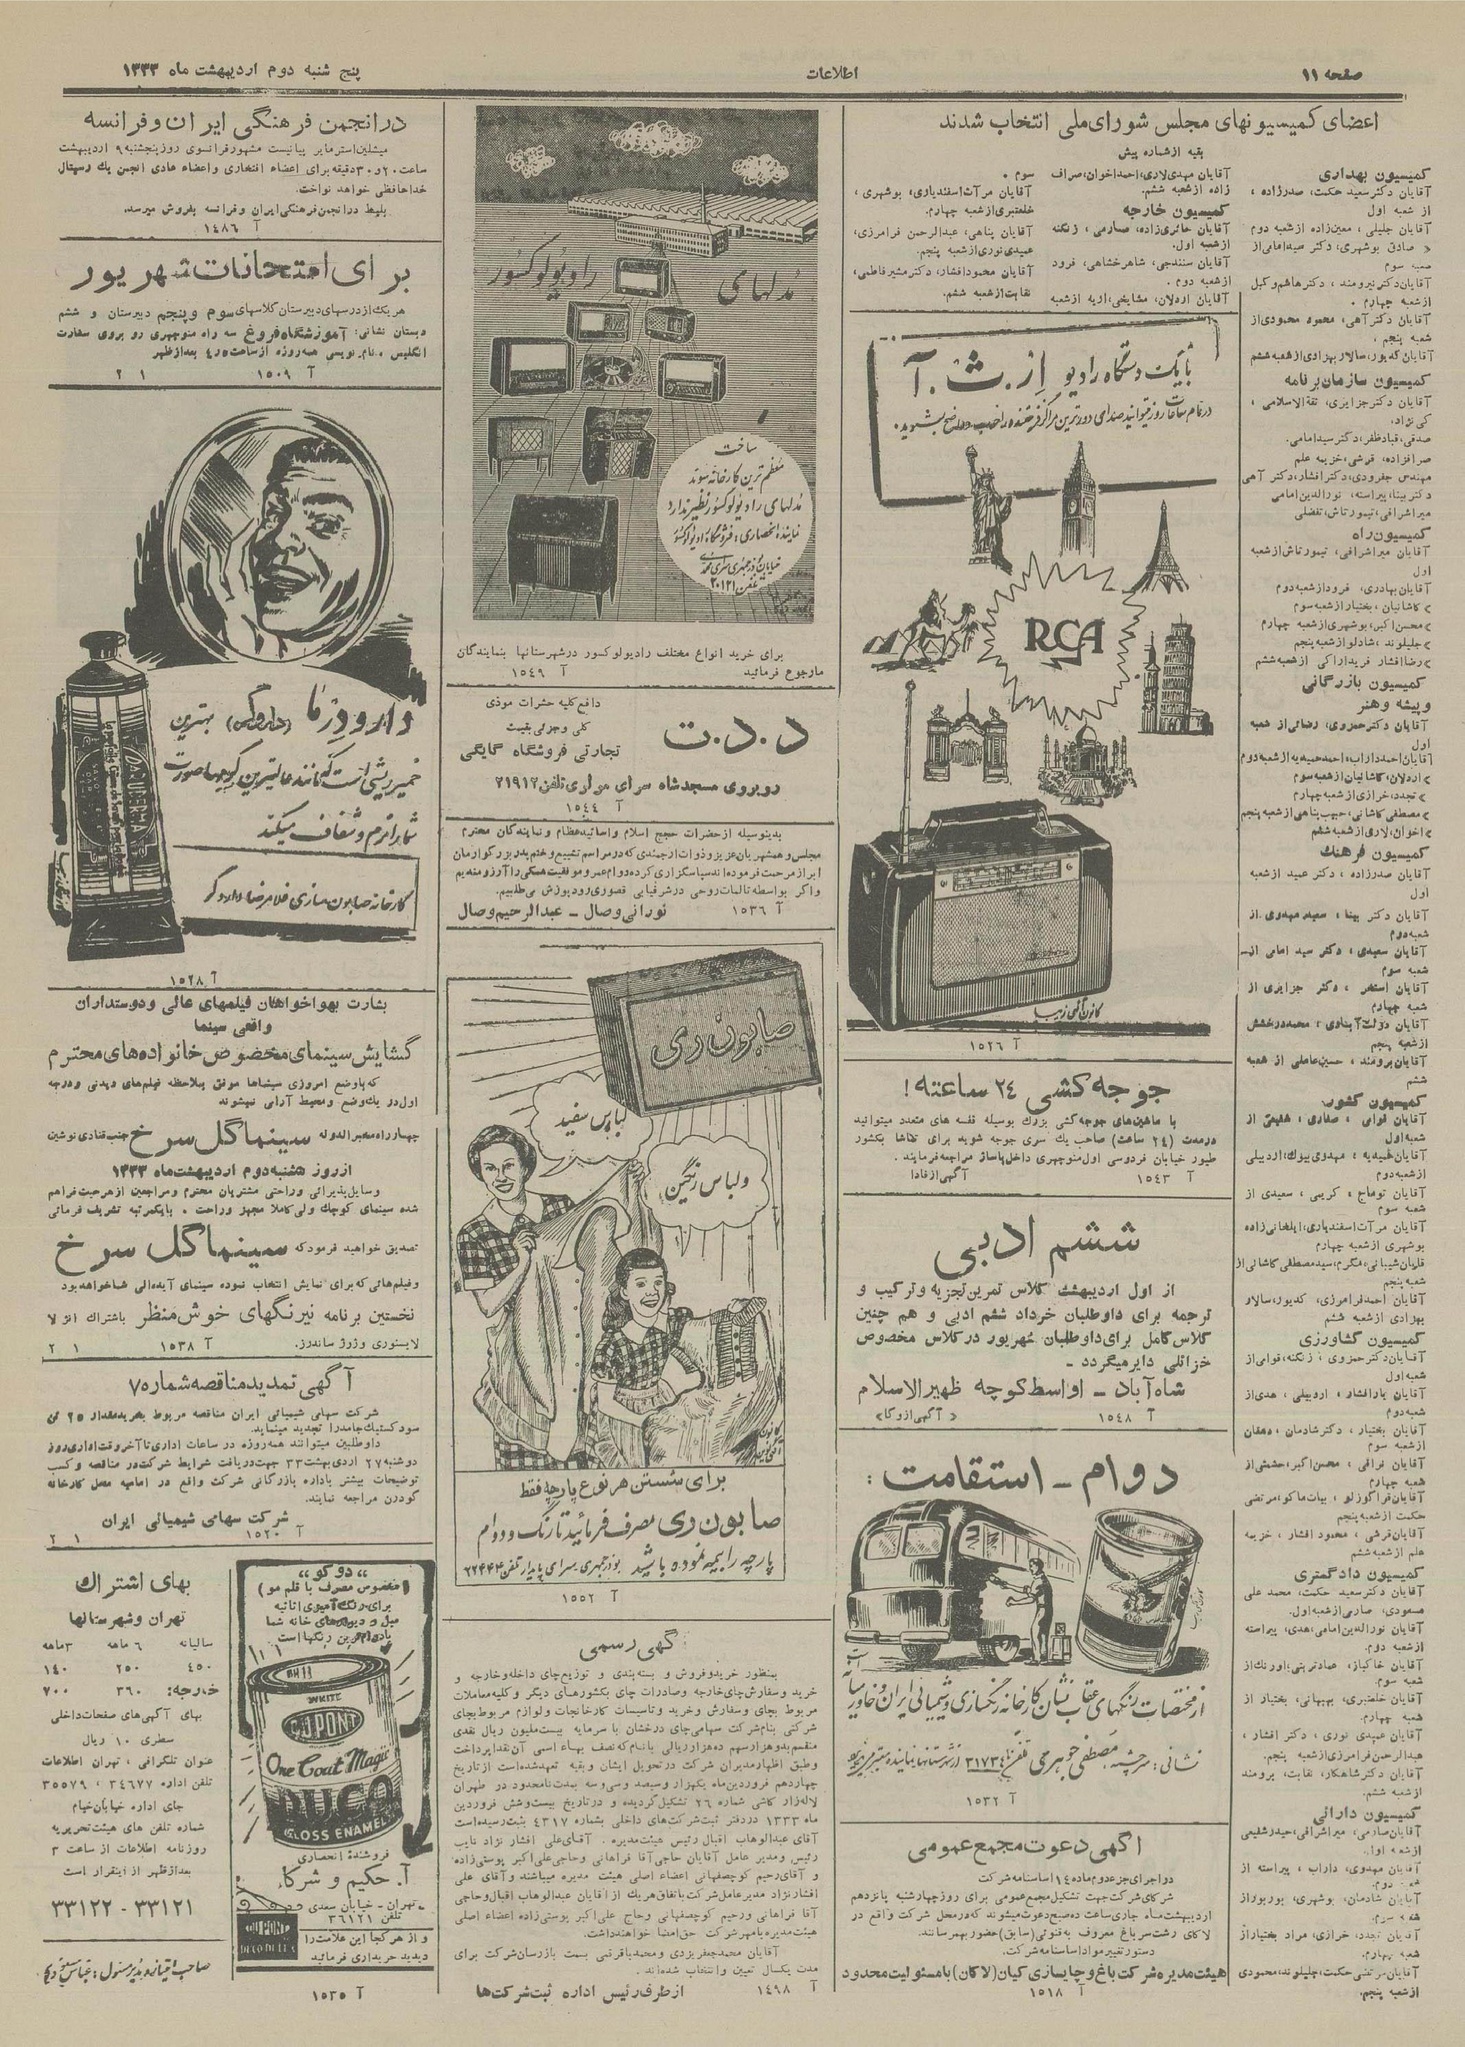 صفحه ۱۱
اطلاعات
پنج شنبه دوم اردیبهشت ماه ۱۳۳۳
اعضای کمیسیونهای مجلس شورای ملی انتخاب شدند
بقیه از شماره پیش
کمیسیون بهداری
آقایان دکتر سعید حکمت، صدرزاده،
از شعبه اول
آقایان جلیلی، معین‌زاده از شعبه دوم
« صادق بوشهری، دکتر سیدامامی از
شعبه سوم
آقایان دکتر نیرومند، دکتر هاشم وکیل
از شعبه چهارم.
آقایان دکتر آهی، محمود محمودی از
شعبه پنجم،
آقایان کدیور، سالار بهزادی از شعبه ششم
کمیسیون سازمان برنامه
آقایان دکتر جزایری، ثقةالاسلامی،
کی نژاد،
صدقی، قبادظفر، دکتر سیدامامی.
صرافزاده، قرشی، خزیمه علم
مهندس جفرودی، دکتر افشار، دکتر آهی
دکتر بینا، پیراسته، نورالدین امامی
میراشرافی، تیمورتاش، تفضلی
کمیسیون راه
آقایان میراشرافی، تیمورتاش از شعبه
اول
آقایان بهادری، فرود از شعبه دوم
» کاشانیان، بختیار از شعبه سوم
» محسن اکبر، بوشهری از شعبه چهارم
» جلیلوند، شادلو از شعبه پنجم
» رضا افشار فرید اراکی از شعبه ششم
کمیسیون بازرگانی
و پیشه و هنر
آقایان دکتر حمزوی، رضائی از شعبه
اول
آقایان احمد داراب، احمد حمیدیه از شعبه دوم
» اردلان، کاشانیان از شعبه سوم
» تجدد، خرازی از شعبه چهارم
» مصطفی کاشانی، حبیب پناهی از شعبه پنجم
» اخوان، لاری از شعبه ششم
کمیسیون فرهنگ
آقایان صدرزاده، دکتر عمید از شعبه
اول
آقایان دکتر بینا، سعید مهدوی از
شعبه دوم
آقایان سعیدی، دکتر سید امامی از
شعبه سوم
آقایان استخر، دکتر جزایری از
شعبه چهارم
آقایان دولت‌آبادی، محمد درخشش
از شعبه پنجم
آقایان برومند، حسین عاملی از شعبه
ششم
کمیسیون کشور
آقایان قوامی، صفاری، شفیعی از
شعبه اول
آقایان حمیدیه، مهدوی، بیوک، اردبیلی
از شعبه دوم
آقایان توماج، کریمی، سعیدی از
شعبه سوم
آقایان مرآت اسفندیاری، ایلخانی‌زاده
بوشهری از شعبه چهارم
قلیان شیبانی، مکرم، سید مصطفی کاشانی از
شعبه پنجم
آقایان احمد فرامرزی، کدیور، سالار
بهزادی از شعبه ششم
کمیسیون کشاورزی
آقایان دکتر حمزوی، زنگنه، قوامی از
شعبه اول
آقایان یارافشار، اردبیلی، هدی از
شعبه دوم
آقایان بختیار، دکتر شادمان، دهقان
از شعبه سوم
آقایان نراقی، محسن اکبر، حشمتی از
شعبه چهارم
آقایان قراگوزلو، بیات ماکو، مرتضی
حکمت از شعبه پنجم
آقایان قرشی، محمود افشار، خزیمه
علم از شعبه ششم
کمیسیون دادگستری
آقایان دکتر سعید حکمت، محمد علی
مسعودی، صارمی از شعبه اول.
آقایان نورالدین امامی، هدی، پیراسته
از شعبه دوم.
آقایان خاکباز، عماد تربتی، اورنک از
شعبه سوم
آقایان خلعتبری، بهبهانی، بختیار از
شعبه چهارم.
آقایان عمیدی نوری، دکتر افشار،
عبدالرحمن فرامرزی از شعبه پنجم.
آقایان دکتر شاهکار، نقابت، برومند
از شعبه ششم.
کمیسیون دارائی
آقایان صارمی، میراشرافی، حیدرشفیعی
از شعبه اول.
آقایان مهدوی، داراب، پیراسته از
شعبه دوم.
آقایان شادمان، بوشهری، پورپوراز
شعبه سوم.
آقایان تجدد، خرازی، مراد بختیار از
شعبه چهارم.
آقایان مرتضی حکمت، جلیلوند، محمودی
از شعبه پنجم.
آقایان مهدی لاری، احمد اخوان، صراف
زاده از شعبه ششم.
کمیسیون خارجه
آقایان حائری‌زاده، صارمی، زنگنه
از شعبه اول.
آقایان سنندجی، شاهرخشاهی، فرود
از شعبه دوم.
آقایان اردلان، مشایخی، اریه از شعبه
سوم.
آقایان مرآت اسفندیاری، بوشهری،
خلعتبری از شعبه چهارم.
آقایان پناهی، عبدالرحمن فرامرزی،
عمیدی نوری از شعبه پنجم.
آقایان محمود افشار، دکتر مشیر فاطمی،
نقابت از شعبه ششم.
با یک دستگاه رادیو اِر. ث. آ
در تمام ساعات روز میتوانید صدای دورترین مراکز فرستنده را خوب و واضح بشنوید.
RCA
کانون آگهی زیبا
آ ۱۵۲٦
جوجه کشی ۲٤ ساعته!
با ماشین‌های جوجه کشی بزرگ بوسیله قفسه های متعدد میتوانید
در مدت (۲٤ ساعت) صاحب یک سری جوجه شوید برای تقاضا بکشور
طیور خیابان فردوسی اول منوچهری داخل پاساژ مراجعه فرمایند.
آ ۱۵٤۳ آگهی از فادا
ششم ادبی
از اول اردیبهشت کلاس تمرین تجزیه و ترکیب و
ترجمه برای داوطلبان خرداد ششم ادبی و هم چنین
کلاس کامل برای داوطلبان شهریور در کلاس مخصوص
خزائلی دایر میگردد -
شاه‌آباد - اواسط کوچه ظهیرالاسلام
آ ۱۵٤۸ « آگهی از وگا »
دوام - استقامت:
از مختصات رنگهای عقاب نشان کارخانه رنگسازی و شیمیائی ایران و خاورمیانه است
نشانی: سرچشمه مصطفی جوهرچی تلفن ۳۱۷۳٤
آ ۱۵۳۲
آگهی دعوت مجمع عمومی
در اجرای جزء دوم ماده ۱٤ اساسنامه شرکت
شرکای شرکت جهت تشکیل مجمع عمومی برای روز چهارشنبه پانزدهم
اردیبهشت ماه جاری ساعت ده صبح دعوت میشوند که در محل شرکت واقع در
لاکان رشت سرباغ معروف به قنوتی (سابق) حضور بهمرسانند.
دستور تغییر مواد اساسنامه شرکت.
هیئت مدیره شرکت باغ و چایسازی کیان (لاکان) با مسئولیت محدود
آ ۱۵۱۸
مُدلهای رادیولوکسور
ساخت
معظم ترین کارخانه سوئد
مُدلهای رادیولوکسور نظیر ندارد
نماینده انحصاری: فروشگاه رادیولوکسور
خیابان بوذرجمهری سرای محمدی
تلفن ۲۰۱۲۱
برای خرید انواع مختلف رادیولوکسور در شهرستانها بنمایندگان
ما رجوع فرمائید آ ۱۵٤۹
د.د.ت
دافع کلیه حشرات موذی
کلی و جزئی بقیمت
تجارتی فروشگاه گایگی
روبروی مسجد شاه سرای مولوی تلفن ۲۱۹۱۲
آ ۱۵٤٤
بدینوسیله از حضرات حجج اسلام و اساتید عظام و نمایندگان محترم
مجلس و همشهریان عزیز و ذوات ارجمندی که در مراسم تشییع و ختم پدر بزرگوارمان
ابراز مرحمت فرموده‌اند سپاسگزاری کرده دوام عمر و موفقیت همگی را آرزومندیم
و اگر بواسطه تألمات روحی در شرفیابی قصوری رود پوزش می‌طلبیم.
آ ۱۵۳٦ نورانی وصال - عبدالرحیم وصال
صابون ری
لباس سفید
و لباس رنگین
برای شستن هر نوع پارچه فقط
صابون ری مصرف فرمائید تا رنگ و دوام
پارچه را بیمه نموده باشید بوذرجمهری سرای پایدار تلفن ۲۲٤٤۳
آ ۱۵۵۲
گهی رسمی
بمنظور خرید و فروش و بسته بندی و توزیع چای داخله و خارجه و
خرید و سفارش چای خارجه و صادرات چای بکشورهای دیگر و کلیه معاملات
مربوط بچای و سفارش و خرید و تأسیسات کارخانجات و لوازم مربوط بچای
شرکتی بنام شرکت سهامی چای درخشان با سرمایه بیست ملیون ریال نقدی
منقسم بدو هزار سهم ده هزار ریالی بانام که نصف بهاء اسمی آن نقداً پرداخت
و طبق اظهار مدیران شرکت در تحویل ایشان و بقیه تعهد شده است از تاریخ
چهاردهم فروردین ماه یکهزار و سیصد و سی و سه بمدت نامحدود در طهران
لاله‌زار کاشی شماره ۲٦ تشکیل گردیده و در تاریخ بیست و شش فروردین
ماه ۱۳۳۳ در دفتر ثبت شرکت‌های داخلی بشماره ٤۳۱۷ بثبت رسیده است
آقای عبدالوهاب اقبال رئیس هیئت مدیره. آقای علی افشار نژاد نایب
رئیس و مدیر عامل آقایان حاجی آقا فراهانی و حاجی علی اکبر پوستی‌زاده
و آقای رحیم کوچصفهانی اعضاء اصلی هیئت مدیره میباشند و آقای علی
افشار نژاد مدیر عامل شرکت باتفاق هر یک از آقایان عبدالوهاب اقبال و حاجی
آقا فراهانی و رحیم کوچصفهانی و حاج علی اکبر پوستی‌زاده اعضاء اصلی
هیئت مدیره با مهر شرکت حق امضا خواهند داشت.
آقایان محمد جعفر یزدی و محمد باقر تقی بسمت بازرسان شرکت برای
مدت یکسال تعیین و انتخاب شده‌اند.
آ ۱٤۹۸ از طرف رئیس اداره ثبت شرکت‌ها
در انجمن فرهنگی ایران و فرانسه
میشلین استرمایر پیانیست مشهور فرانسوی روز پنجشنبه ۹ اردیبهشت
ساعت ۲۰ و ۳۰ دقیقه برای اعضاء افتخاری و اعضاء عادی انجمن یک رسیتال
خداحافظی خواهد نواخت.
بلیط در انجمن فرهنگی ایران و فرانسه بفروش میرسد.
آ ۱٤۸٦
برای امتحانات شهریور
هر یک از درسهای دبیرستان کلاسهای سوم و پنجم دبیرستان و ششم
دبستان نشانی: آموزشگاه فروغ سه راه منوچهری رو بروی سفارت
انگلیس. نام نویسی همه روزه از ساعت ۵ر٤ بعد از ظهر
آ ۱۵۰۹ ۱ ۲
DARUDERMA
دارودِرما (داروگر) بهترین
خمیر ریشی است که مانند عالیترین کرمها صورت
شما را نرم و شفاف میکند
کارخانه صابون سازی غلامرضا داروگر
آ ۱۵۲۸
بشارت بهواخواهان فیلمهای عالی و دوستداران
واقعی سینما
گشایش سینمای مخصوص خانواده‌های محترم
که با وضع امروزی سینماها موفق بملاحظه فیلم‌های دیدنی و درجه
اول در یک وضع و محیط آرامی نمیشوند
چهارراه مخبرالدوله سینما گل سرخ جنب قنادی نوشین
از روز شنبه دوم اردیبهشت ماه ۱۳۳۳
وسایل پذیرائی و راحتی مشتریان محترم و مراجعین از هر حیث فراهم
شده سینمای کوچک ولی کاملا مجهز و راحت. با یکمرتبه تشریف فرمائی
تصدیق خواهید فرمود که سینما گل سرخ
و فیلم‌هائی که برای نمایش انتخاب نموده سینمای آیده‌آلی شما خواهد بود
نخستین برنامه نیرنگهای خوش منظر باشتراک آنژلا
لانسبوری و ژرژ ساندرز. آ ۱۵۳۸ ۱ ۲
آگهی تمدید مناقصه شماره ۷
شرکت سهامی شیمیائی ایران مناقصه مربوط بخرید مقدار ۲۵ تن
سود کستیک جامد را تجدید مینماید.
داوطلبین میتوانند همه روزه در ساعات اداری تا آخر وقت اداری روز
دوشنبه ۲۷ اردی‌بهشت ۳۳ جهت دریافت شرایط شرکت در مناقصه و کسب
توضیحات بیشتر باداره بازرگانی شرکت واقع در امامیه محل کارخانه
کودرن مراجعه نمایند.
شرکت سهامی شیمیائی ایران
آ ۱۵۲۰ ۱ ۲
"دوکو"
(مخصوص مصرف با قلم مو)
برای رنگ آمیزی اثاثیه
مبل و دیوارهای خانه شما
بادوام‌ترین رنگها است
WHITE
DU PONT
One Coat Magic
DUCO
GLOSS ENAMEL
فروشندهٔ انحصاری
آ. حکیم و شرکاء
تهران - خیابان سعدی
تلفن ۳٦۱۲۱
و از هر کجا این علامت را
دیدید خریداری فرمائید
DU PONT
آ ۱۵۳۵
بهای اشتراک
تهران و شهرستانها
سالیانه ٦ ماهه ۳ ماهه
٤۵۰ ۲۵۰ ۱٤۰
خارجه: ۳٦۰ ۷۰۰
بهای آگهی‌های صفحات داخلی
سطری ۱۰ ریال
عنوان تلگرافی، تهران اطلاعات
تلفن اداره ۳٤٦۷۷، ۳۵۵۷۹
جای اداره خیابان خیام
شماره تلفن های هیئت تحریریه
روزنامه اطلاعات از ساعت ۳
بعد از ظهر از اینقرار است
۳۳۱۲۱ - ۳۳۱۲۲
صاحب امتیاز و مدیر مسئول: عباس مسعودی